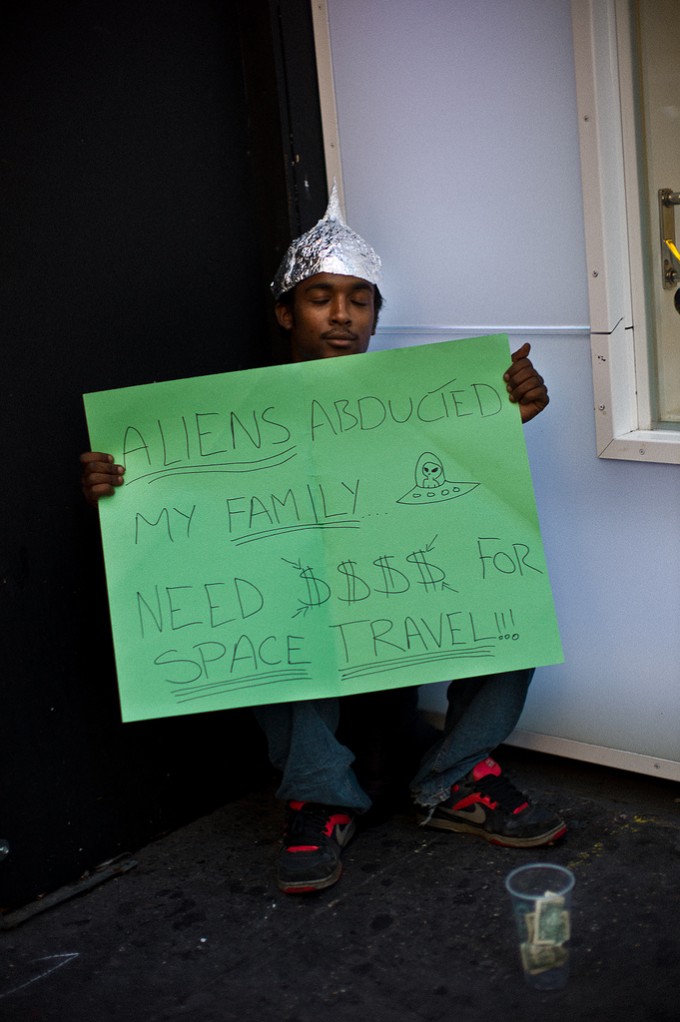 ALIENS ABDUCTED
MY FAMILY....
NEED $$$$ FOR
SPACE TRAVEL!!!